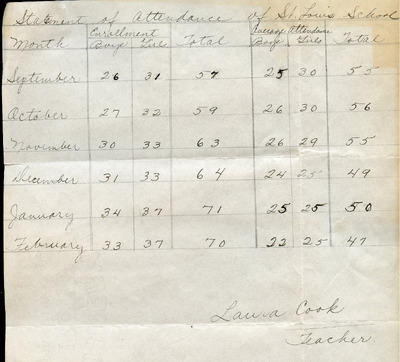 Statement of Attendance of St. Louis School
Month Enrollment Boys Girls Total Average Attendance Boys Girls Total
September 26 31 57 25 30 55
October 27 32 59 26 30 56
November 30 33 63 26 29 55
December 31 33 64 24 25 49
January 34 37 71 25 25 50
February 33 37 70 22 25 47
Laura Cook
Teacher.